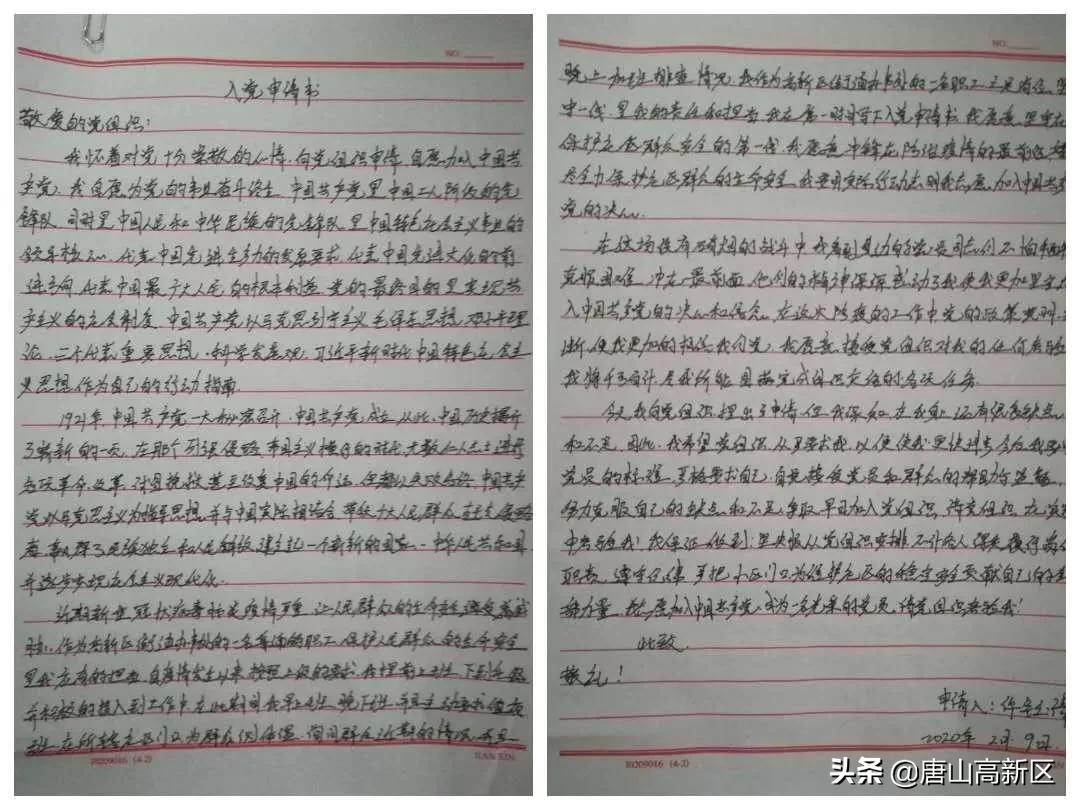 NO.
入党申请书
敬爱的党组织：
我怀着对党十分崇敬的心情，向党组织申请，自愿加入中国共
产党，我自愿为党的事业奋斗终生。中国共产党是中国工人阶级的先
锋队，同时是中国人民和中华民族的先锋队，是中国特色社会主义事业的
领导核心，代表中国先进生产力的发展要求，代表中国先进文化的前
进方向，代表中国最广大人民的根本利益。党的最终目的是实现共
产主义的社会制度。中国共产党以马克思列宁主义、毛泽东思想、邓小平理
论、三个代表重要思想、科学发展观、习近平新时代中国特色社会主
义思想，作为自己的行动指南。
1921年，中国共产党一大秘密召开，中国共产党成立，从此，中国历史揭开
了崭新的一页。在那个列强侵略、帝国主义横行的时代，无数仁人志士进行
各项革命、改革，试图挽救甚至改变中国的命运，但都以失败告终。中国共产
党以马克思主义为指导思想，并与中国实际相结合，带领广大人民群众
取得了民族独立和人民解放，建立起一个崭新的国家——中华人民共和国，
并逐步实现社会主义现代化。
近期新型冠状病毒肺炎疫情严重，让人民群众的生命安全遭受着威
胁，作为高新区街道办事处的一名普通的职工，保护人民群众的生命安全
是我应有的担当，自疫情发生以来，按照上级的要求，我提前上班，下到社区
并积极的投入到工作中，在此期间我早上班，晚下班，并且主动要求值夜
班，在所辖社区门口为群众测体温，询问群众近期的情况，并且
R0209046 (4-2)
NO.
晚上加班排查情况，我作为高新区街道办事处的一名职工，立足岗位，坚
守一线，是我的责任和担当，我在第一时间写下入党申请书，我愿意坚守在
保护社区群众安全的第一线，我愿意冲锋在防治疫情的最前沿，
尽全力保护社区群众的生命安全，我要用实际行动表明我志愿加入中国共产
党的决心。
在这场没有硝烟的战斗中，我看到身边的党员同志们不怕
克服困难，冲在最前面，他们的精神深深感动了我，使我更加坚定
入中国共产党的决心和信念。在这次防疫的工作中，党的政策
使我更加的相信我们党，我愿意接受党组织对我的任何考验，
我将不负重托，尽我所能，圆满完成组织交给的各项任务。
今天，我向党组织提出了申请，但我深知，在我身上还有很多缺点
和不足，因此，我希望党组织从严要求我，以便使我更快进步。今后，我要
党员的标准，严格要求自己，自觉接受党员和群众的帮助与监督，
努力克服自己的缺点和不足，争取早日加入党组织。请党组织在
中考验我！我保证做到：坚决服从党组织安排，不计个人得失，
职责，遵守纪律，严把小区门口，为维护社区的稳定安全贡献自己的
力量。我志愿加入中国共产党，成为一名光荣的党员，请党组织考验我！
此致
敬礼！
申请人：
2020年2月9日
R0209046 (4-2)
头条 @唐山高新区